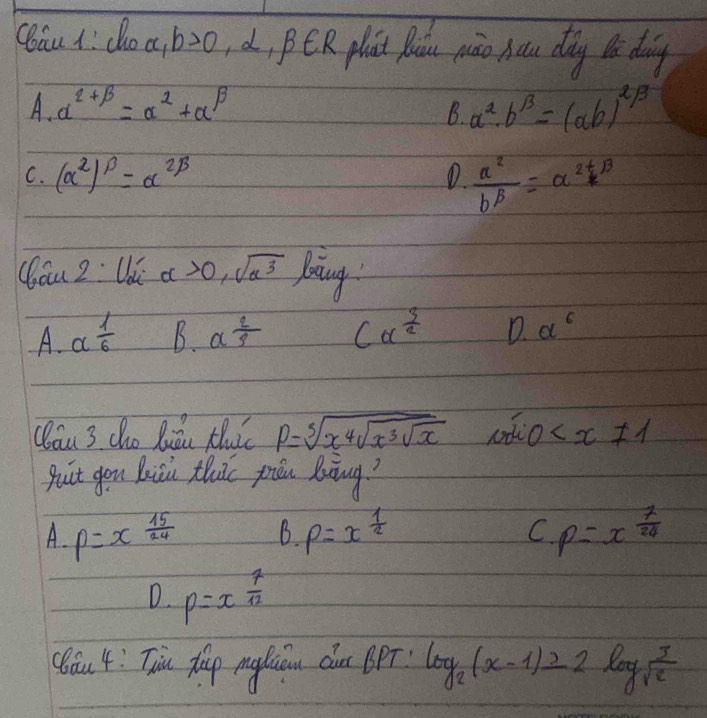 Câu 1: cho a, b>0, α, β ∈ R phát biểu nào sau đây là đúng
A. a^{2+β} = a^2 + a^β B. a^2.b^β = (ab)^{2β}
C. (a^2)^β = a^{2β} D. \frac{a^2}{b^β} = a^{2 β}
Câu 2: Với a >0, \sqrt{a^3} bằng:
A. a^{\frac{1}{6}} B. a^{\frac{2}{3}} C a^{\frac{3}{2}} D. a^6
Câu 3 cho biểu thức P = \sqrt[3]{x^4\sqrt{x^3\sqrt{x}}} với 0 < x ≠ 1
rút gọn biểu thức trên bằng?
A. P = x^{\frac{15}{24}} B. P = x^{\frac{1}{2}} C. P = x^{\frac{7}{24}}
D. P = x^{\frac{7}{12}}
Câu 4: Tìm tập nghiệm của BPT: log_2 (x-1) ≥ 2 log